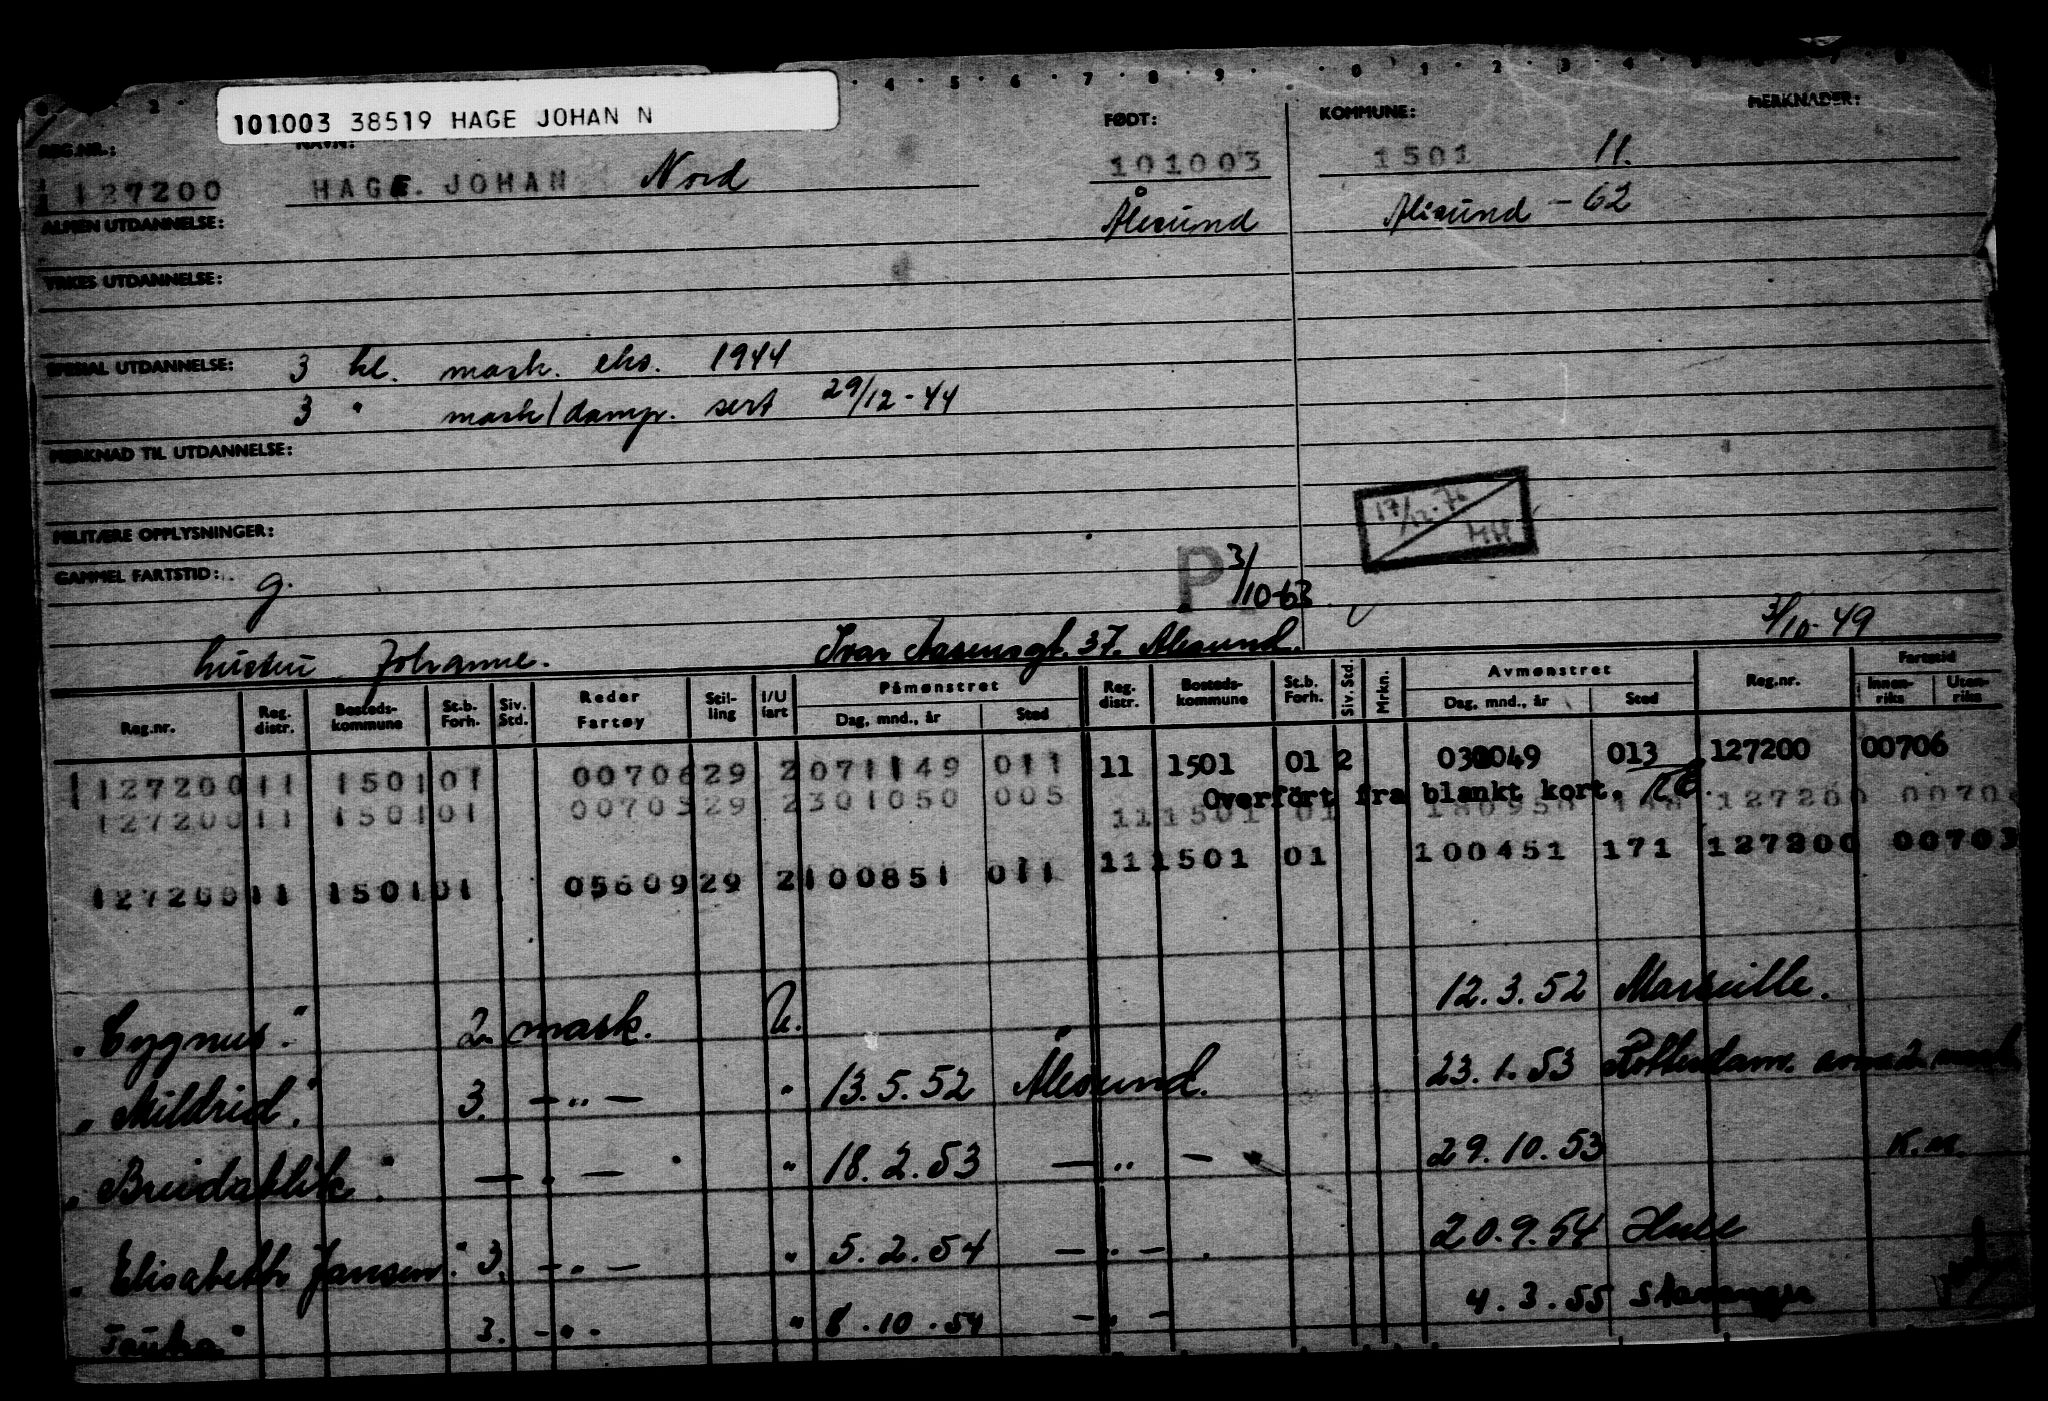 2 · 4 · 5 · 6 · 7 · 8 · 9 · 0 · 1 · 2 · 3 · 4 7 8
101003 38519 HAGE JOHAN N
REG.NR.: NAVN: FØDT: KOMMUNE: MERKNADER:
127200 HAGE. JOHAN Nord 101003 1501 11.
ALMEN UTDANNELSE: Ålesund Ålesund - 62
YRKES UTDANNELSE:
SPESIAL UTDANNELSE: 3 kl. mask. eks. 1944
3 " mask/damp. sert 29/12-44
MERKNAD TIL UTDANNELSE:
17/12-76
MILITÆRE OPPLYSNINGER:
GAMMEL FARTSTID: g. P 3/10-63
3/10-49
hustru Johanne. Ivar Aasensgt. 37. Ålesund.
Reg.nr. Reg. distr. Bosteds-kommune St.b. Forh. Siv. Std. Reder Fartøy Stil-ling I/U fart Påmønstret Dag, mnd., år Sted Reg. distr. Bosteds-kommune St.b. Forh. Siv. Std. Mrkn. Avmønstret Dag, mnd., år Sted Reg.nr. Fartstid Innen-riks Uten-riks
127200 11 1501 01 00706 29 2 071149 011 11 1501 01 2 49 013 127200 00706
Overført fra blankt kort.
127200 11 1501 01 00703 29 2 301050 005 11 1501 01 127200
11 1501 01 100451 171 127200 00703
127200 11 1501 01 05609 29 2 100851 011
"Cygnus". 2. mask. U. 12.3.52 Marseille.
"Mildrid". 3. -"- " 13.5.52 Ålesund. 23.1.53 Rotterdam.
"Breidablik". -"- " 18.2.53 -"- 29.10.53 K.M.
"Elisabeth Jansen". 3. -"- " 5.2.54 -"- 20.9.54
3. -"- " 8.10.54 -"- 4.3.55 Stavanger